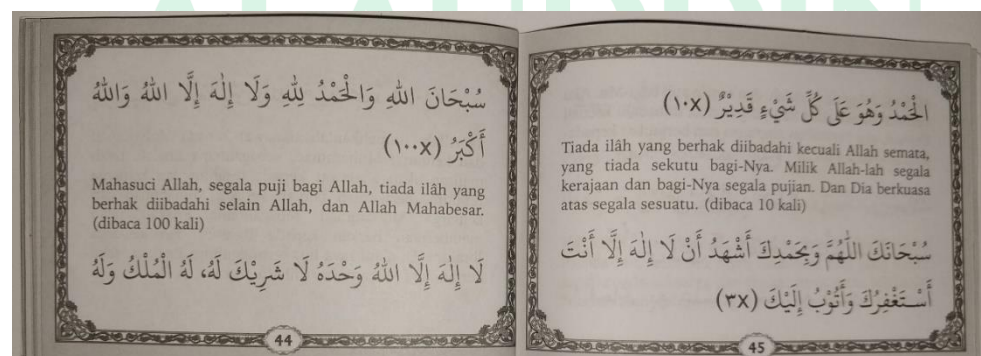 سُبْحَانَ اللهِ وَالْحَمْدُ لِلهِ وَلَا إِلَهَ إِلَّا اللهُ وَاللهُ
أَكْبَرُ (١٠٠x)
Mahasuci Allah, segala puji bagi Allah, tiada ilâh yang
berhak diibadahi selain Allah, dan Allah Mahabesar.
(dibaca 100 kali)
لَا إِلَهَ إِلَّا اللهُ وَحْدَهُ لَا شَرِيْكَ لَهُ، لَهُ الْمُلْكُ وَلَهُ
44
الْحَمْدُ وَهُوَ عَلَى كُلِّ شَيْءٍ قَدِيْرٌ (١٠x)
Tiada ilâh yang berhak diibadahi kecuali Allah semata,
yang tiada sekutu bagi-Nya. Milik Allah-lah segala
kerajaan dan bagi-Nya segala pujian. Dan Dia berkuasa
atas segala sesuatu. (dibaca 10 kali)
سُبْحَانَكَ اللَّهُمَّ وَبِحَمْدِكَ أَشْهَدُ أَنْ لَا إِلَهَ إِلَّا أَنْتَ
أَسْتَغْفِرُكَ وَأَتُوْبُ إِلَيْكَ (٣x)
45